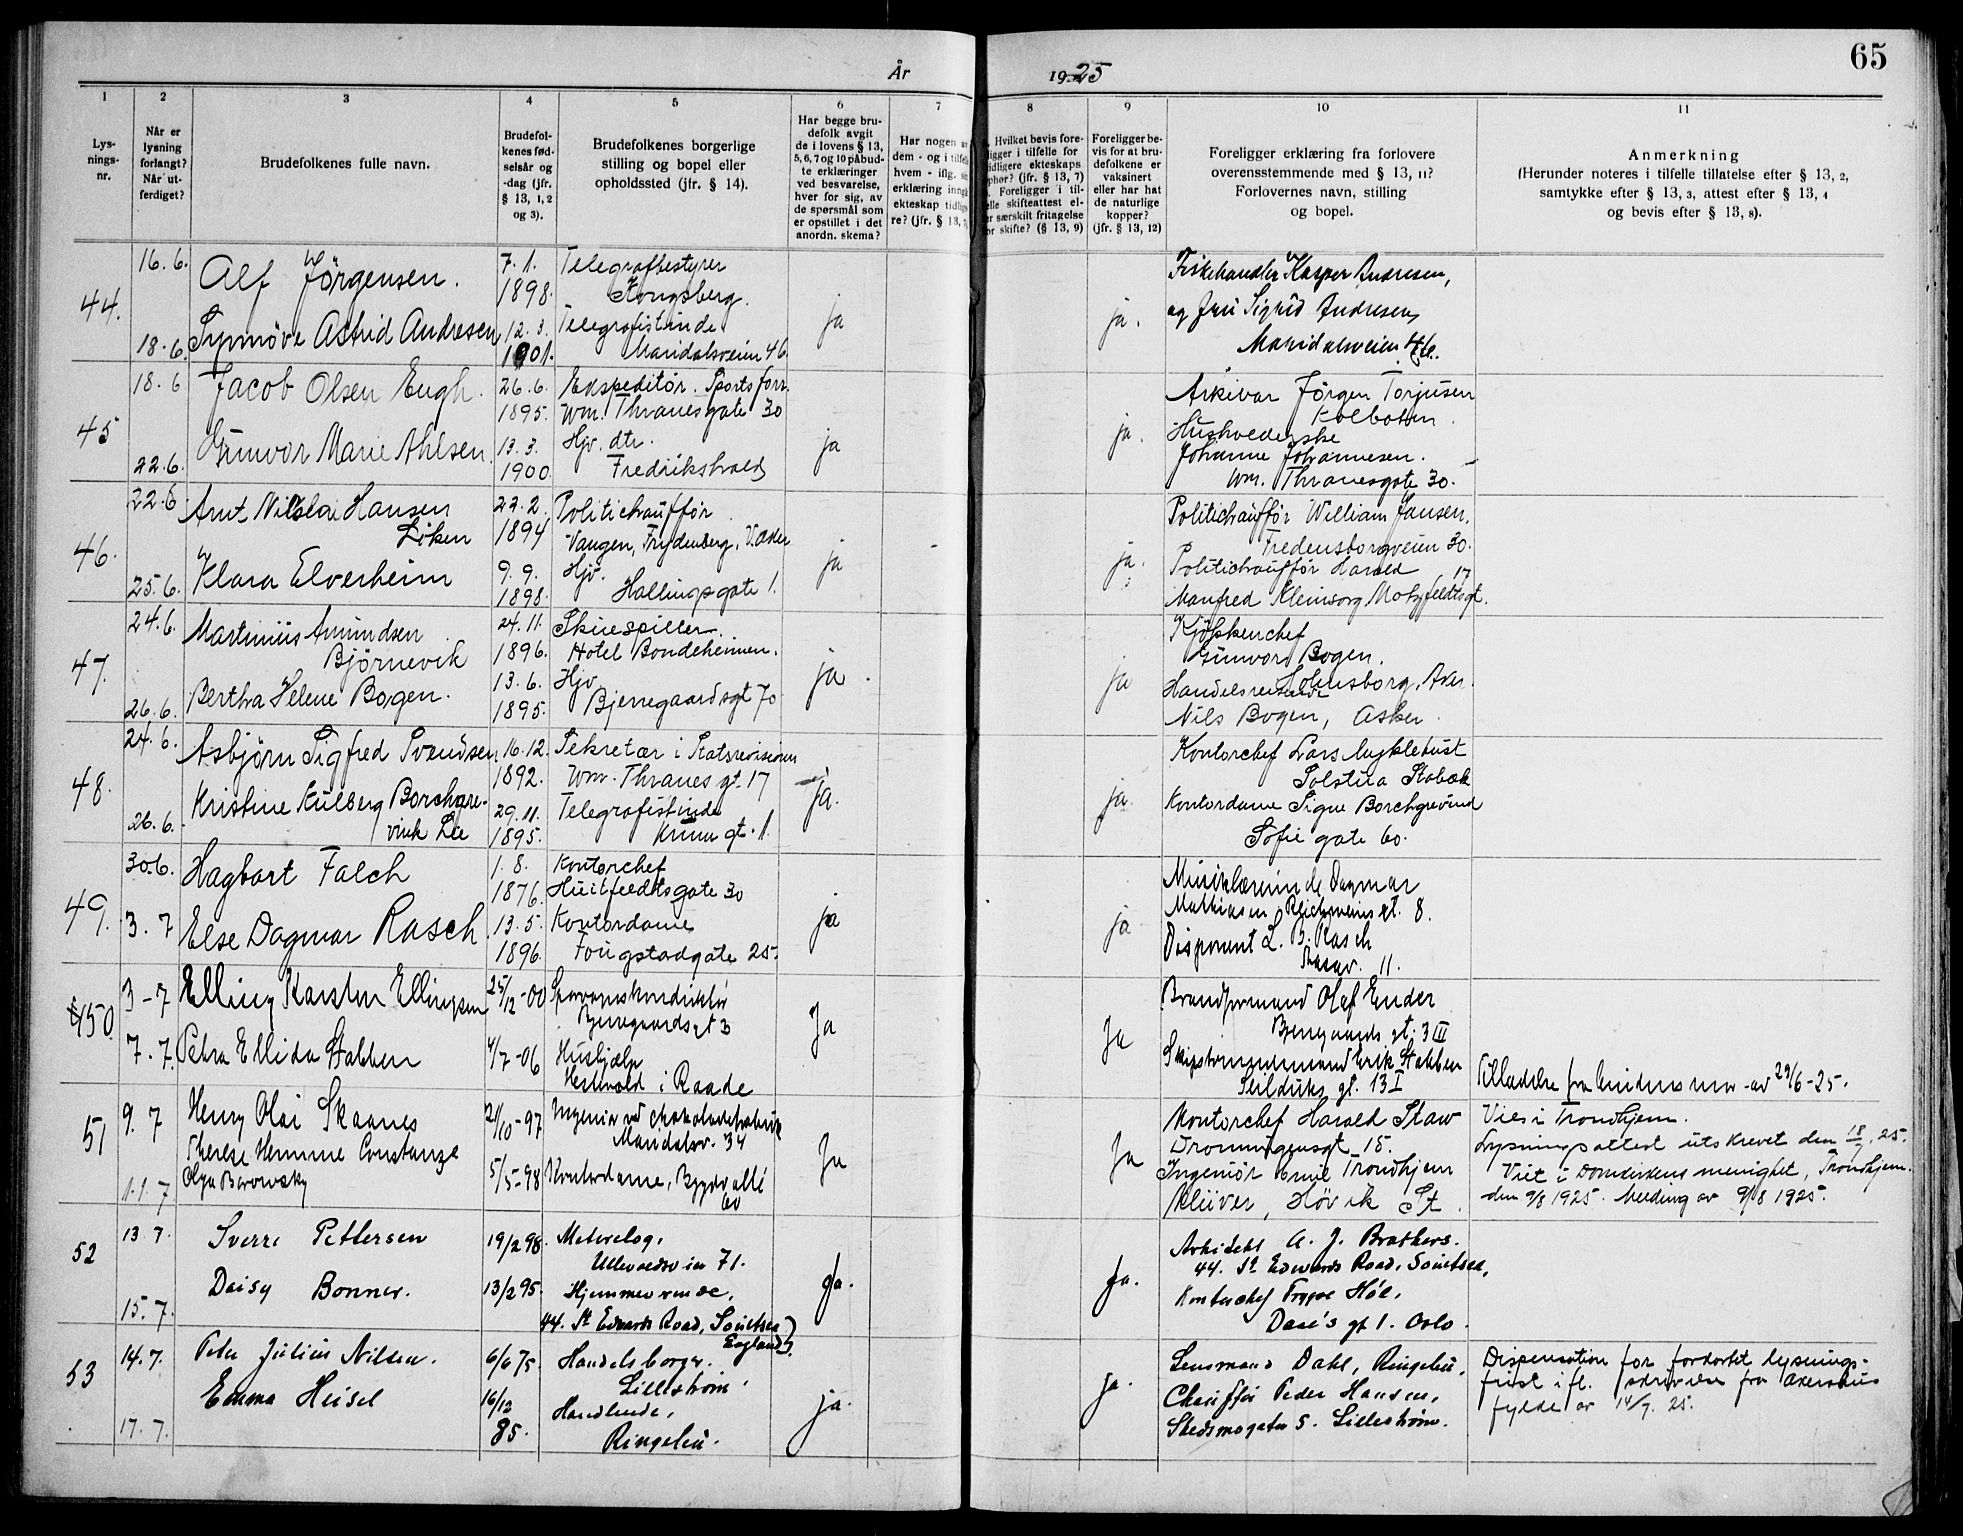 65
År 1925
1
Lys-
nings-
nr.
2
Når er
lysning
forlangt?
Når ut-
ferdiget?
3
Brudefolkenes fulle navn.
4
Brudefol-
kenes fød-
selsår og
-dag (jfr.
§ 13, 1, 2
og 3).
5
Brudefolkenes borgerlige
stilling og bopel eller
opholdssted (jfr. § 14).
6
Har begge bru-
defolk avgit
de i lovens § 13,
5, 6, 7 og 10 påbud-
te erklæringer
ved besvarelse,
hver for sig, av
de spørsmål som
er opstillet i det
anordn. skema?
7
Har nogen av
dem - og i tilfelle
hvem - iflg.
erklæring inng
ekteskap tidlig
re? (jfr. § 13,
8
Hvilket bevis fore-
ligger i tilfelle for
tidligere ekteskaps
ophør? (jfr. § 13, 7)
Foreligger i til-
felle skifteattest el-
ler særskilt fritagelse
for skifte? (§ 13, 9)
9
Foreligger be-
vis for at bru-
defolkene er
vaksinert
eller har hat
de naturlige
kopper?
(jfr. § 13, 12)
10
Foreligger erklæring fra forlovere
overensstemmende med § 13, 11?
Forlovernes navn, stilling
og bopel.
11
Anmerkning
(Herunder noteres i tilfelle tillatelse efter § 13, 2,
samtykke efter § 13, 3, attest efter § 13, 4
og bevis efter § 13, 8).
44.
16.6.
18.6.
Alf Jörgensen.
Synnöve Astrid Andresen
7.1.
1898.
12.3.
1901.
Telegrafbestyrer
Kongsberg.
Telegrafistinde
Maridalsveien 46.
ja
ja.
Fiskehandler Kasper Andresen,
og fru Sigrid Andresen,
Maridalsveien 46.
45
18.6
22.6.
Jacob Olsen Engh.
Gunvor Marie Ahlsen.
26.6.
1895.
13.3.
1900.
Ekspeditör. Sportsforr.
Wm. Thranesgate 30
Hjv. dtr.
Fredrikshald
ja
ja.
Arkivar Jörgen Torjusen
Kolbotten.
Husholderske
Johanne Johannesen.
Wm. Thranesgate 30.
46.
22.6
25.6.
Arnt Nikolai Hansen
Löken
Klara Elverheim
22.2.
1894
9.9.
1898.
Politichauffør
Vangen, Frydenberg, V. Aker
Hjv.
Hallingsgate 1.
ja
-
ja.
Politichauffør William Jansen.
Fredensborgveien 30.
Politichauffør Harald 17
Manfred Kleinsorg Motzfeldtsgt.
47.
24.6.
26.6.
Martinius Amundsen
Björnevik
Bertha Helene Bogen.
24.11.
1896.
13.6.
1895.
Skuespiller.
Hotel Bondeheimen.
Hjv.
Bjerregaardsgt 70
ja
ja
Kjökkenchef
Gunvor Bogen.
Handelsreisende
Nils Bogen, Asker.
48.
24.6.
26.6.
Asbjörn Sigfred Svendsen
Kristine Kulberg Borchgre-
vink Lie
16.12.
1892.
29.11.
1895.
Sekretær i Statsrevisionen
Wm. Thranes gt. 17
Telegrafistinde
Krum gt. 1.
ja.
ja.
Kontorchef Lars Myklebust
Solstua Stabæk
Kontordame Signe Borchgrevink
Sofie gate 60.
49.
30.6.
3.7
Hagbart Falch
Else Dagmar Rasch
1.8.
1876.
13.5.
1896.
Kontorchef
Huitfeldtsgate 30
Kontordame
Fougstadgate 25.
ja
ja
Musiklærerinde Dagmar
Mathiesen, Reichweins gt. 8.
Disponent L. B. Rasch
11.
450.
3-7
7.7.
Elling Karsten Ellingsen
Petra Ellida Stabben
25/12-00
4/7-06
Sporvognskonduktör
Bjerregaardsgt 3
Hushjælp
Vestvold i Raade
Ja
Ja
Brandformand Olaf Ender
Bjerregaards gt. 3 III
Skipstømmermand Erik Stabben
Seilduks gt. 13 I
Tilladelse fra av 29/6-25.
51
9.7
11.7
Henry Olai Skaanes
Therese Hemme Constanze
Olga Borowsky
21/10-97
5/5-98
Ingeniör ved chokoladefabrik
Maridalsv. 34
Kontordame, Bygdø allé
60
Ja
Ja
Kontorchef Harald Staw
Dronningensgt 15.
Ingeniör Emil Trondhjem
Klüver, Hövik St.
Vies i Trondhjem.
Lysningsattest utskrevet den 18/7.25.
Viet i Domkirkens menighet, Trondhjem.
den 9/8 1925. Melding av 9/8 1925.
52
13.7.
15.7.
Sverre Pettersen
Daisy Bonner.
19/2 98.
13/2 95.
Meterolog.
Ullevaalsveien 71.
Hjemmeværende.
44. St Edwards Road, Southsea
England.
Ja.
Ja.
Arkitekt A. J. Brothers.
44. St Edwards Road, Southsea,
Kontorchef Trygve Höe,
Daae's gt 1. Oslo.
53
14.7.
17.7.
Peder Julius Nilsen.
Emma Heisel
6/6 75.
16/12
85.
Handelsborger.
Lilleström.
Handlende,
Ringebu.
ja.
ja.
Lensmand Dahl, Ringebu,
Chauffør Peder Hansen,
Skedsmogaten 5. Lilleström.
Dispensation for forkortet lysnings-
frist ifl. skrivelse fra Akershus
fylde av 14/7.25.